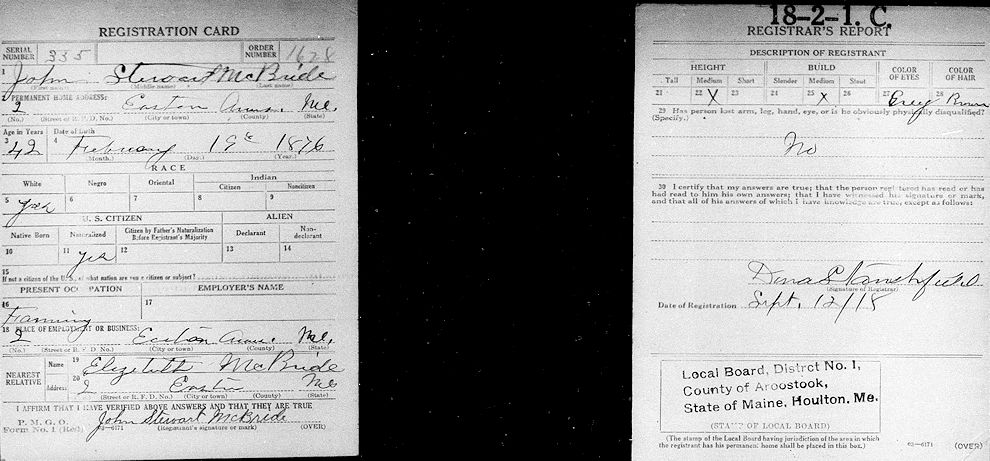 REGISTRATION CARD
SERIAL NUMBER 335 ORDER NUMBER 1628
1 John Stewart McBride
(First name) (Middle name) (Last name)
2 PERMANENT HOME ADDRESS:
2 Easton Me.
(No.) (Street or R. F. D. No.) (City or town) (County) (State)
Age in Years Date of Birth
3 42 4 February 19th 1876
(Month.) (Day.) (Year.)
RACE
White Negro Oriental Indian
Citizen Noncitizen
5 Yes 6 7 8 9
U. S. CITIZEN ALIEN
Native Born Naturalized Citizen by Father's Naturalization Before Registrant's Majority Declarant Non-declarant
10 11 Yes 12 13 14
15
If not a citizen of the U. S., of what nation are you a citizen or subject?
PRESENT OCCUPATION EMPLOYER'S NAME
16 Farming 17
18 PLACE OF EMPLOYMENT OR BUSINESS:
2 Easton Me.
(No.) (Street or R. F. D. No.) (City or town) (County) (State)
NEAREST RELATIVE Name 19 Elizabeth McBride
Address 20 2 Easton Me
(No.) (Street or R. F. D. No.) (City or town) (County) (State)
I AFFIRM THAT I HAVE VERIFIED ABOVE ANSWERS AND THAT THEY ARE TRUE
P. M. G. O.
Form No. 1 (Red) 03-6171 John Stewart McBride
(Registrant's signature or mark) (OVER)
18-2-1. C.
REGISTRAR'S REPORT
DESCRIPTION OF REGISTRANT
HEIGHT BUILD COLOR OF EYES COLOR OF HAIR
Tall Medium Short Slender Medium Stout
21 22 ✓ 23 24 25 x 26 27 Grey 28 Brown
29 Has person lost arm, leg, hand, eye, or is he obviously physically disqualified?
(Specify.)
No
30 I certify that my answers are true; that the person registered has read or has
had read to him his own answers; that I have witnessed his signature or mark,
and that all of his answers of which I have knowledge are true, except as follows:
(Signature of Registrar)
Date of Registration Sept. 12/18
Local Board, District No. 1,
County of Aroostook,
State of Maine, Houlton, Me.
(STAMP OF LOCAL BOARD)
(The stamp of the Local Board having jurisdiction of the area in which
the registrant has his permanent home shall be placed in this box.)
03-6171 (OVER)